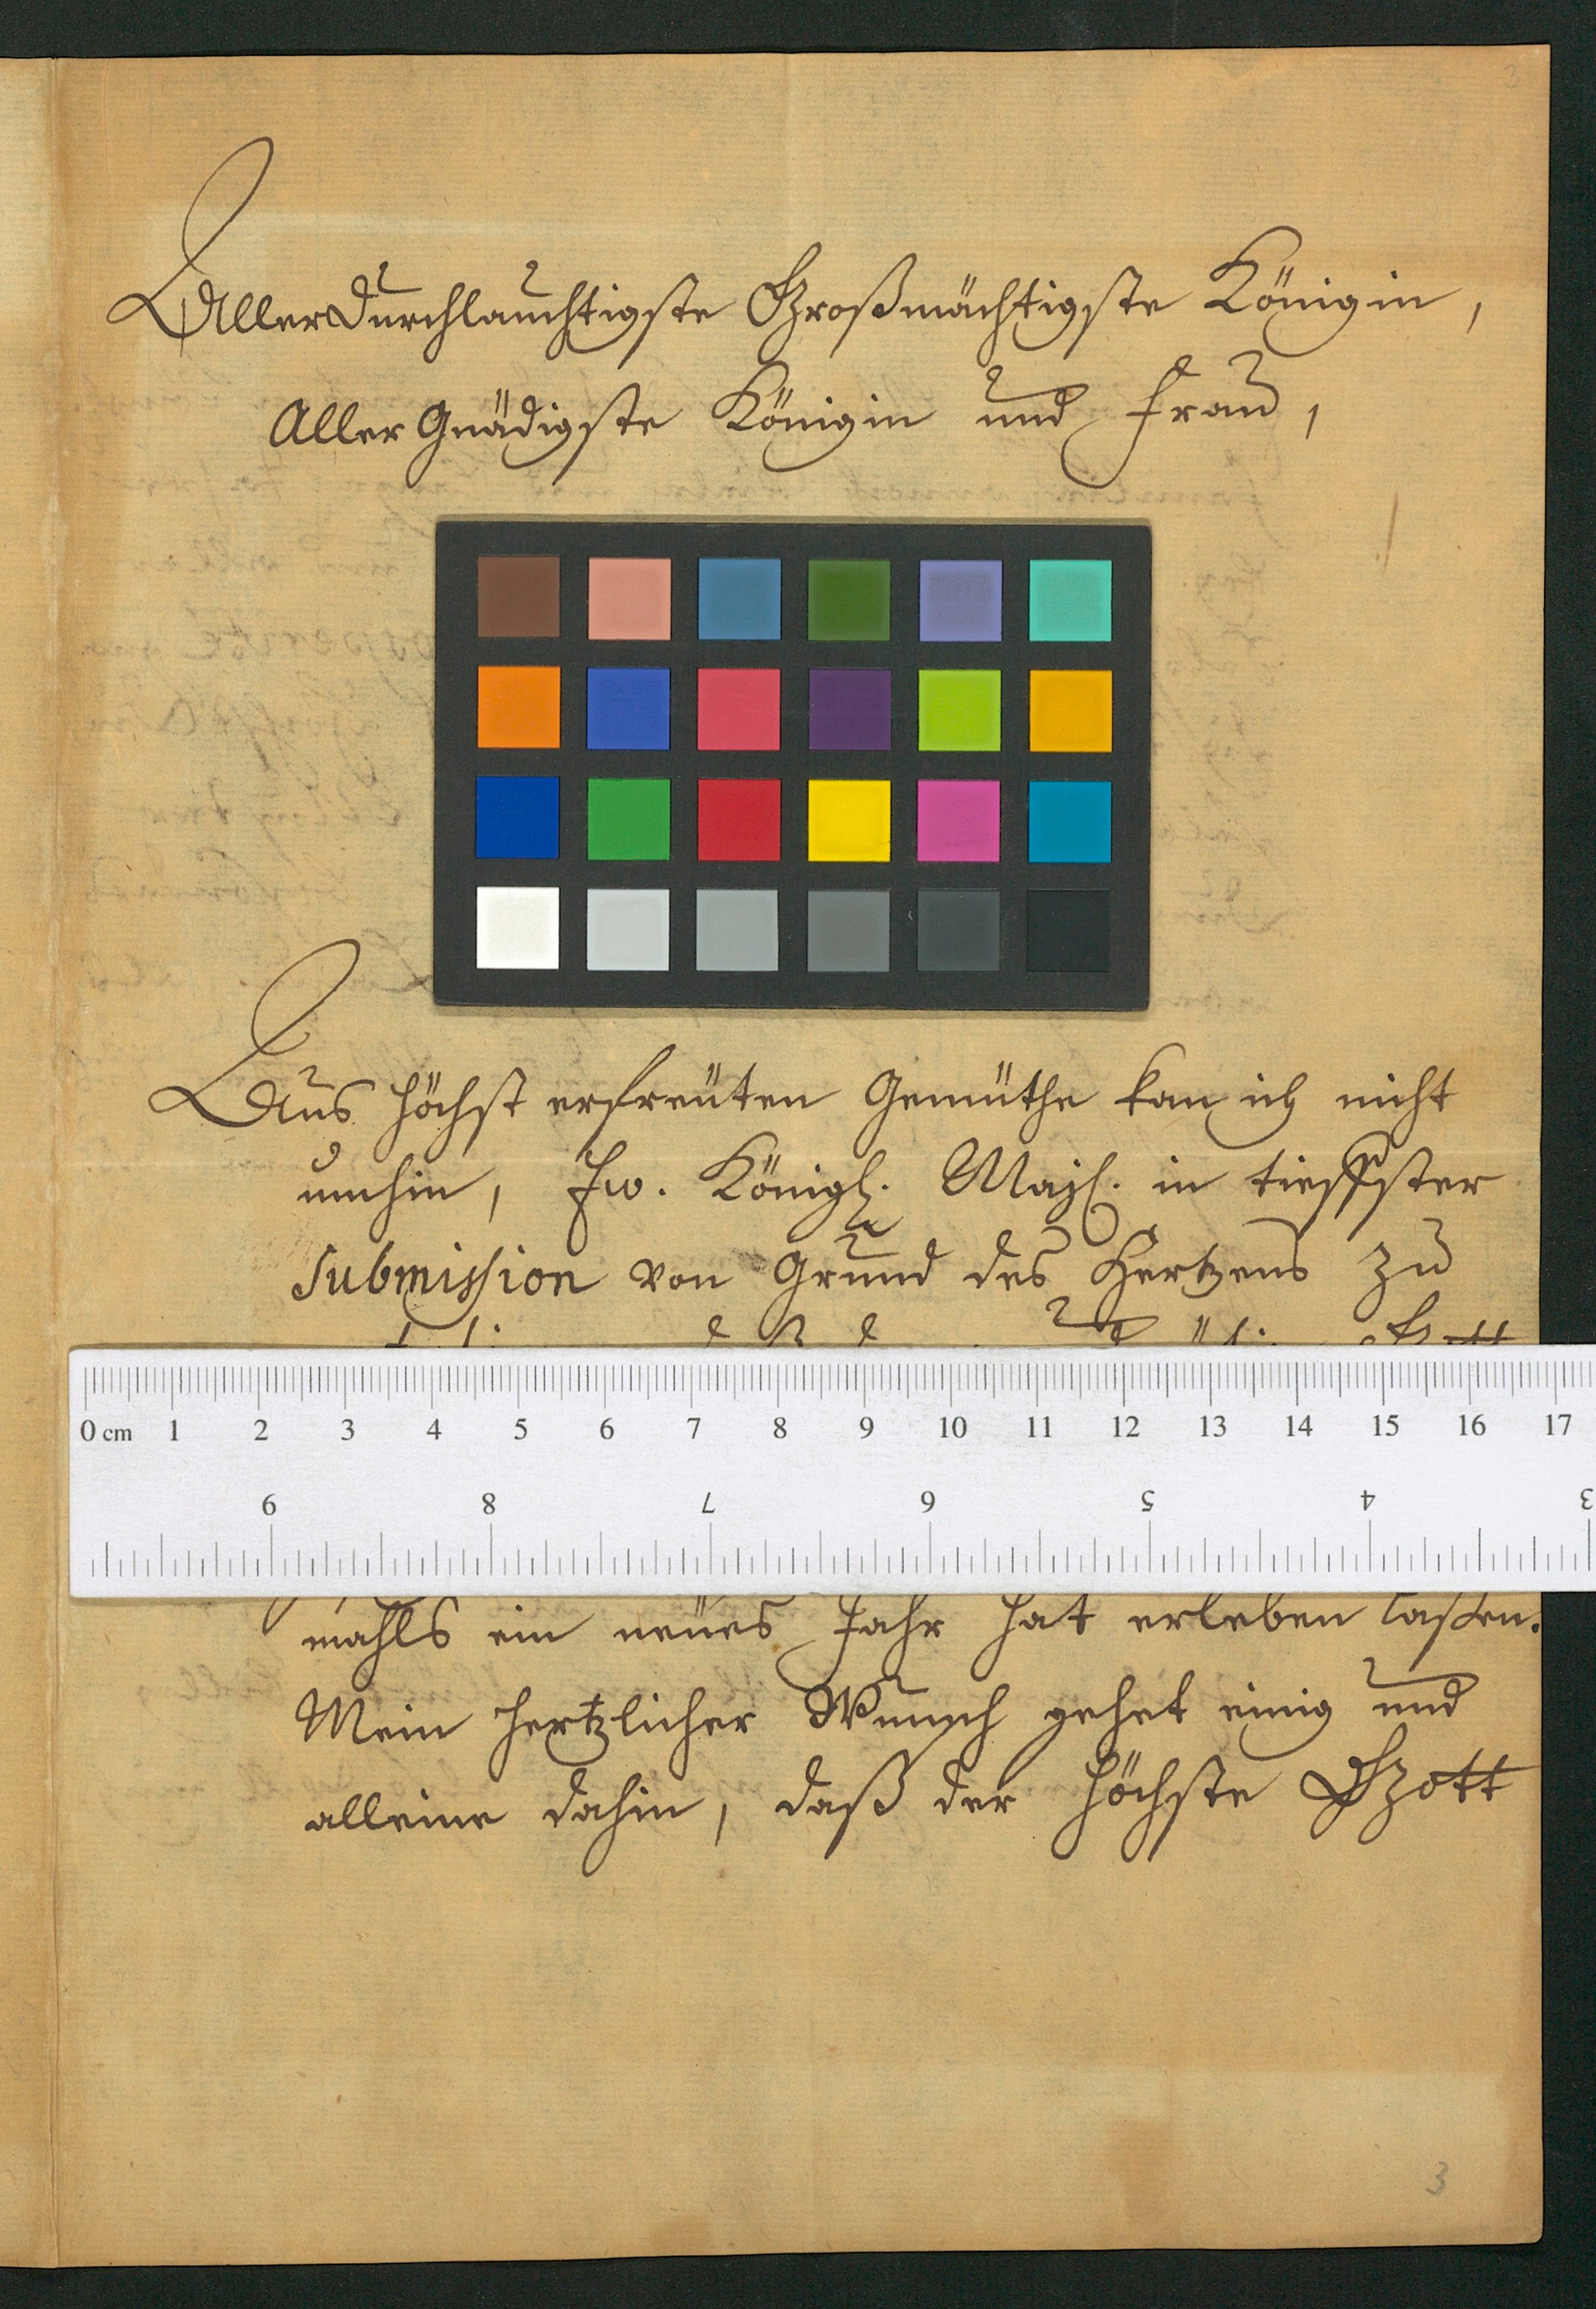 3
Allerdurchlauchtigste Großmächtigste Königin,
Aller Gnädigste Königin und Frau,
Aus höchst erfreuten Gemüthe kan ich nicht
umhin, Ew. Königl. Majt. in tieffster
Submission von Grund des Hertzens zu
0 cm 1 2 3 4 5 6 7 8 9 10 11 12 13 14 15 16 17
9 8 7 6 5 4 3
mahls ein neües Jahr hat erleben laßen.
Mein hertzlicher Wunsch gehet einig und
alleine dahin, daß der höchste Gott
3